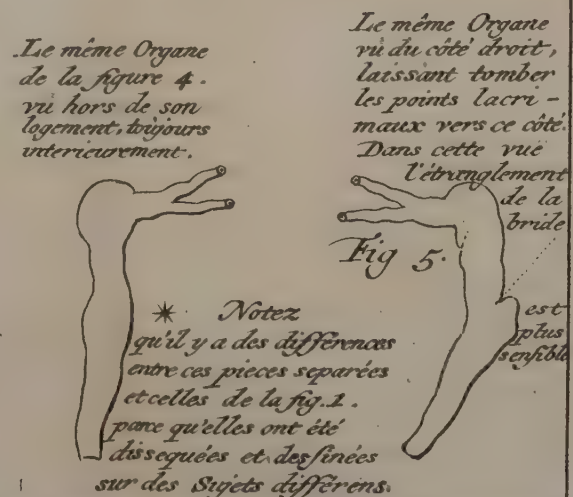 Le même Organe
de la figure 4.
vû hors de son
logement, toûjours
interieurement.
Le même Organe
vû du côté droit,
laissant tomber
les points lacri-
maux vers ce côté.
Dans cette vuë
l'étranglement
de la
bride
est
plus
sensible
Fig 5.
✴ Notez
qu'il y a des différences
entre ces pieces separées
et celles de la fig. 1.
parce qu'elles ont été
dissequées et dessinées
sur des Sujets différens.